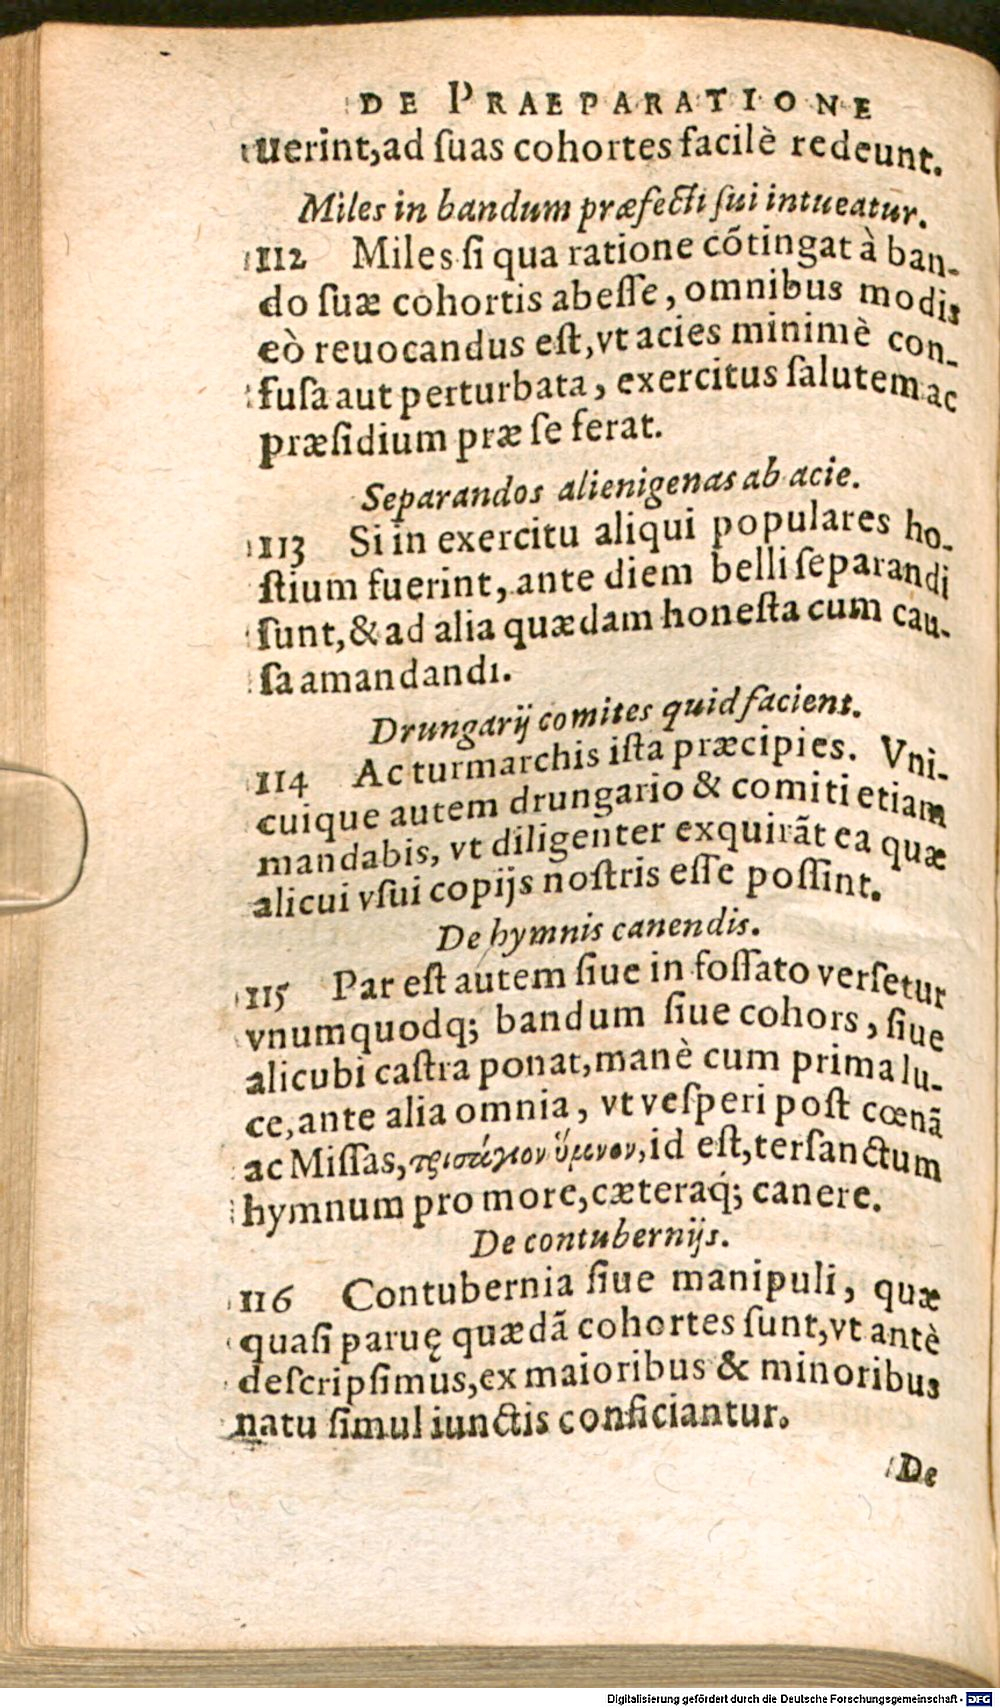 DE PRAEPARATIONE
uerint,ad ſuas cohortes facilè redeunt.
Miles in bandum præfecti ſui intueatur.
112 Miles ſi qua ratione cõtingat à ban-
do ſuæ cohortis abeſſe, omnibus modis
eò reuocandus eſt,vt acies minimè con-
fuſa aut perturbata, exercitus ſalutem ac
præſidium præ ſe ferat.
Separandos alienigenas ab acie.
113 Si in exercitu aliqui populares ho-
ſtium fuerint, ante diem belli ſeparandi
ſunt,& ad alia quædam honeſta cum cau-
ſa amandandi.
Drungarij comites quid facient.
114 Ac turmarchis iſta præcipies. Vni-
cuique autem drungario & comiti etiam
mandabis, vt diligenter exquirãt ea quæ
alicui vſui copijs noſtris eſſe poſſint.
De hymnis canendis.
115 Par eſt autem ſiue in foſſato verſetur
vnumquodq; bandum ſiue cohors, ſiue
alicubi caſtra ponat,manè cum prima lu-
ce,ante alia omnia, vt veſperi poſt cœnã
ac Miſſas,τρισάγιον ὕμνον,id eſt,terſanctum
hymnum pro more,cæteraq́; canere.
De contubernijs.
116 Contubernia ſiue manipuli, quæ
quaſi paruę quædã cohortes ſunt,vt antè
deſcripſimus,ex maioribus & minoribus
natu ſimul iunctis conficiantur.
De
Digitalisierung gefördert durch die Deutsche Forschungsgemeinschaft - DFG